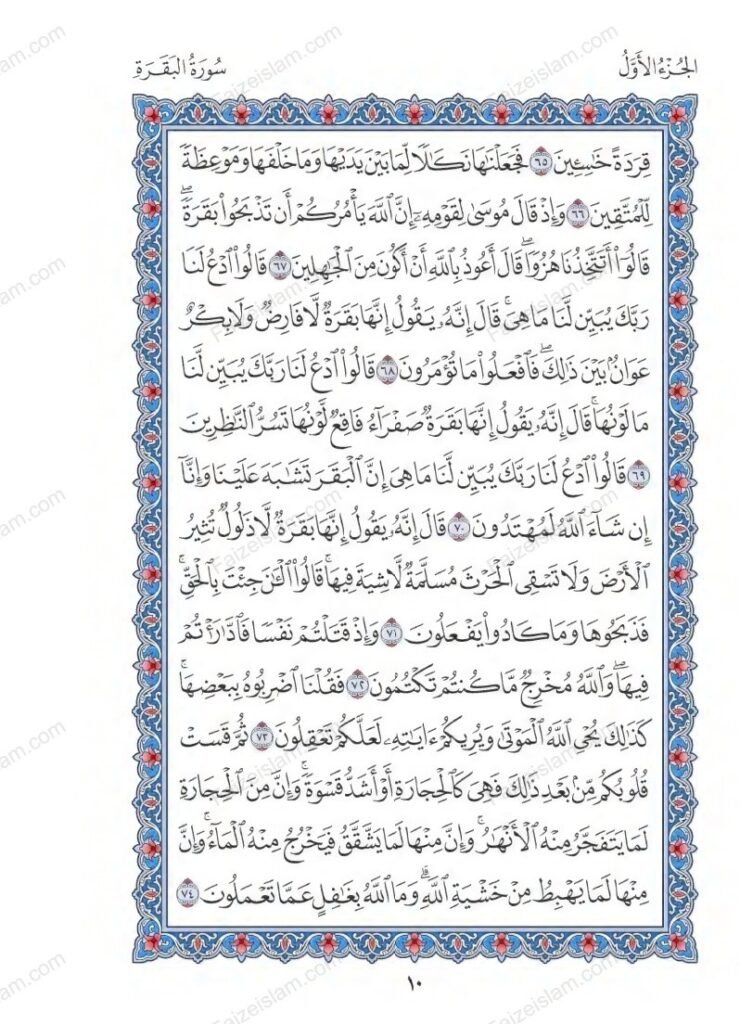 الجُزْءُ الأَوَّلُ
سُورَةُ البَقَرَةِ
قِرَدَةً خَٰسِـِٔينَ ٦٥ فَجَعَلْنَٰهَا نَكَٰلًا لِّمَا بَيْنَ يَدَيْهَا وَمَا خَلْفَهَا وَمَوْعِظَةً
لِّلْمُتَّقِينَ ٦٦ وَإِذْ قَالَ مُوسَىٰ لِقَوْمِهِۦٓ إِنَّ ٱللَّهَ يَأْمُرُكُمْ أَن تَذْبَحُوا۟ بَقَرَةًۖ
قَالُوٓا۟ أَتَتَّخِذُنَا هُزُوًاۖ قَالَ أَعُوذُ بِٱللَّهِ أَنْ أَكُونَ مِنَ ٱلْجَٰهِلِينَ ٦٧ قَالُوا۟ ٱدْعُ لَنَا
رَبَّكَ يُبَيِّن لَّنَا مَا هِىَۚ قَالَ إِنَّهُۥ يَقُولُ إِنَّهَا بَقَرَةٌ لَّا فَارِضٌ وَلَا بِكْرٌ
عَوَانٌۢ بَيْنَ ذَٰلِكَۖ فَٱفْعَلُوا۟ مَا تُؤْمَرُونَ ٦٨ قَالُوا۟ ٱدْعُ لَنَا رَبَّكَ يُبَيِّن لَّنَا
مَا لَوْنُهَاۚ قَالَ إِنَّهُۥ يَقُولُ إِنَّهَا بَقَرَةٌ صَفْرَآءُ فَاقِعٌ لَّوْنُهَا تَسُرُّ ٱلنَّٰظِرِينَ
٦٩ قَالُوا۟ ٱدْعُ لَنَا رَبَّكَ يُبَيِّن لَّنَا مَا هِىَ إِنَّ ٱلْبَقَرَ تَشَٰبَهَ عَلَيْنَا وَإِنَّآ
إِن شَآءَ ٱللَّهُ لَمُهْتَدُونَ ٧٠ قَالَ إِنَّهُۥ يَقُولُ إِنَّهَا بَقَرَةٌ لَّا ذَلُولٌ تُثِيرُ
ٱلْأَرْضَ وَلَا تَسْقِى ٱلْحَرْثَ مُسَلَّمَةٌ لَّا شِيَةَ فِيهَاۚ قَالُوا۟ ٱلْـَٰٔنَ جِئْتَ بِٱلْحَقِّۚ
فَذَبَحُوهَا وَمَا كَادُوا۟ يَفْعَلُونَ ٧١ وَإِذْ قَتَلْتُمْ نَفْسًا فَٱدَّٰرَْٰٔتُمْ
فِيهَاۖ وَٱللَّهُ مُخْرِجٌ مَّا كُنتُمْ تَكْتُمُونَ ٧٢ فَقُلْنَا ٱضْرِبُوهُ بِبَعْضِهَاۚ
كَذَٰلِكَ يُحْىِ ٱللَّهُ ٱلْمَوْتَىٰ وَيُرِيكُمْ ءَايَٰتِهِۦ لَعَلَّكُمْ تَعْقِلُونَ ٧٣ ثُمَّ قَسَتْ
قُلُوبُكُم مِّنۢ بَعْدِ ذَٰلِكَ فَهِىَ كَٱلْحِجَارَةِ أَوْ أَشَدُّ قَسْوَةًۚ وَإِنَّ مِنَ ٱلْحِجَارَةِ
لَمَا يَتَفَجَّرُ مِنْهُ ٱلْأَنْهَٰرُۚ وَإِنَّ مِنْهَا لَمَا يَشَّقَّقُ فَيَخْرُجُ مِنْهُ ٱلْمَآءُۚ وَإِنَّ
مِنْهَا لَمَا يَهْبِطُ مِنْ خَشْيَةِ ٱللَّهِۗ وَمَا ٱللَّهُ بِغَٰفِلٍ عَمَّا تَعْمَلُونَ ٧٤
١٠
Faizeislam.com